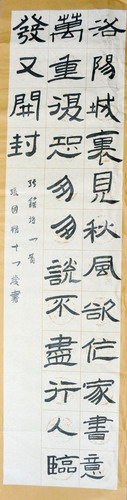 洛陽城裏見秋風欲作家書意
萬重復恐匆匆說不盡行人臨
發又開封
張籍詩一首